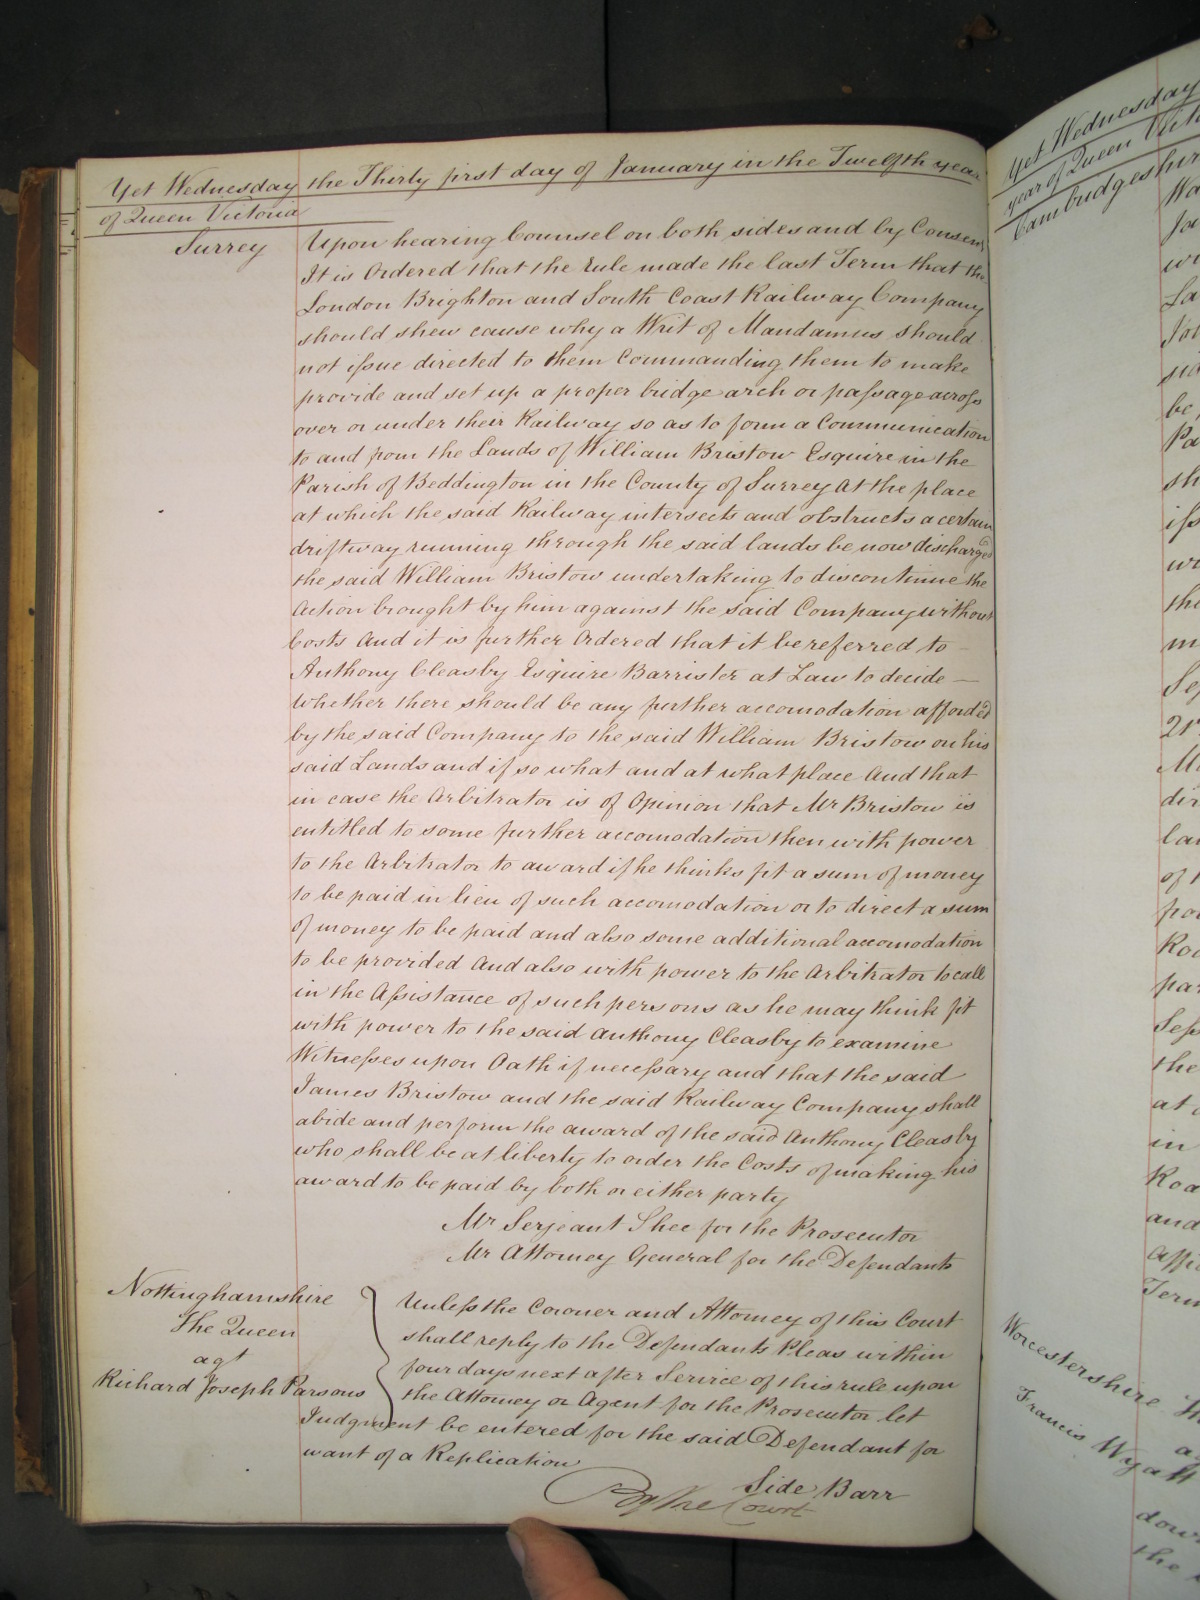 Yet Wednesday the Thirty first day of January in the Twelfth year
of Queen Victoria
Surrey
Upon hearing Counsel on both sides and by Consent
It is Ordered that the Rule made the last Term that the
London Brighton and South Coast Railway Company
should shew cause why a Writ of Mandamus should
not issue directed to them Commanding them to make
provide and set up a proper bridge arch or passage across
over or under their Railway so as to form a Communication
to and from the Lands of William Bristow Esquire in the
Parish of Beddington in the County of Surrey at the place
at which the said Railway intersects and obstructs a certain
driftway running through the said lands be now discharged
the said William Bristow undertaking to discontinue the
Action brought by him against the said Company without
Costs And it is further Ordered that it be referred to –
Anthony Cleasby Esquire Barrister at Law to decide —
whether there should be any further accomodation afforded
by the said Company to the said William Bristow on his
said Lands and if so what and at what place And that
in case the Arbitrator is of Opinion that Mr Bristow is
entitled to some further accomodation then with power
to the Arbitrator to award if he thinks fit a sum of money
to be paid in lieu of such accomodation or to direct a sum
of money to be paid and also some additional accomodation
to be provided And also with power to the Arbitrator to call
in the Assistance of such persons as he may think fit
with power to the said Anthony Cleasby to examine
Witnesses upon Oath if necessary and that the said
James Bristow and the said Railway Company shall
abide and perform the award of the said Anthony Cleasby
who shall be at liberty to order the Costs of making his
award to be paid by both or either party
Mr Serjeant Shee for the Prosecutor
Mr Attorney General for the Defendants
Nottinghamshire
The Queen
agt
Richard Joseph Parsons
Unless the Coroner and Attorney of this Court
shall reply to the Defendants Pleas within
four days next after Service of this rule upon
the Attorney or Agent for the Prosecutor let
Judgment be entered for the said Defendant for
want of a Replication
Side Barr
By the Court
Yet Wednesday
year of Queen
Cambridgeshire
be
the
at
in
and
Worcestershire
Francis Wyatt
the